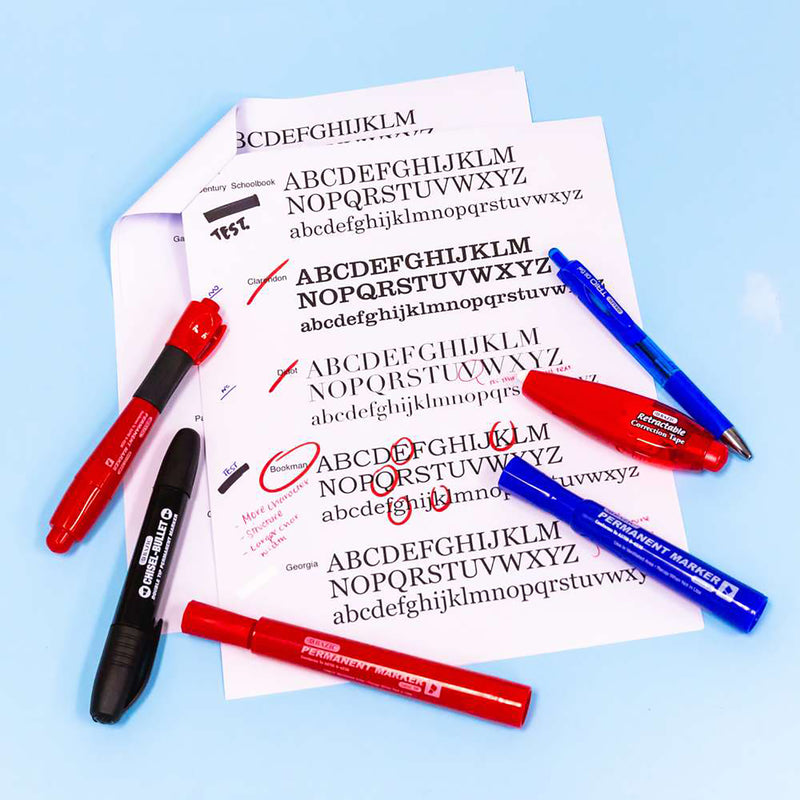 BCDEFGHIJKLM
entury Schoolbook
ABCDEFGHIJKLM
NOPQRSTUVWXYZ
abcdefghijklmnopqrstuvwxyz
TEST.
Ga
NO
Clarendon
ABCDEFGHIJKLM
NOPQRSTUVWXYZ
abcdefghijklmnopqrstuvw
NO
Didot
ABCDEFGHIJKLM
NOPQRSTUVWXYZ
abcdefghijklmnopqrs
Pa
TEST
Bookman
ABCDEFGHIJKLM
NOPQRSTUVWXYZ
abcdefghijklmnopqrstuvwxyz
- More character
- Structure
- Larger char
width
Georgia
ABCDEFGHIJKLM
NOPQRSTUVWXYZ
abcdefghijklmnopqrstuvwxy
BAZIC
Retractable
Correction Tape
PERMANENT MARKER
BAZIC
CHISEL-BULLET
DOUBLE TIP PERMANENT MARKER
BAZIC
PERMANENT MARKER